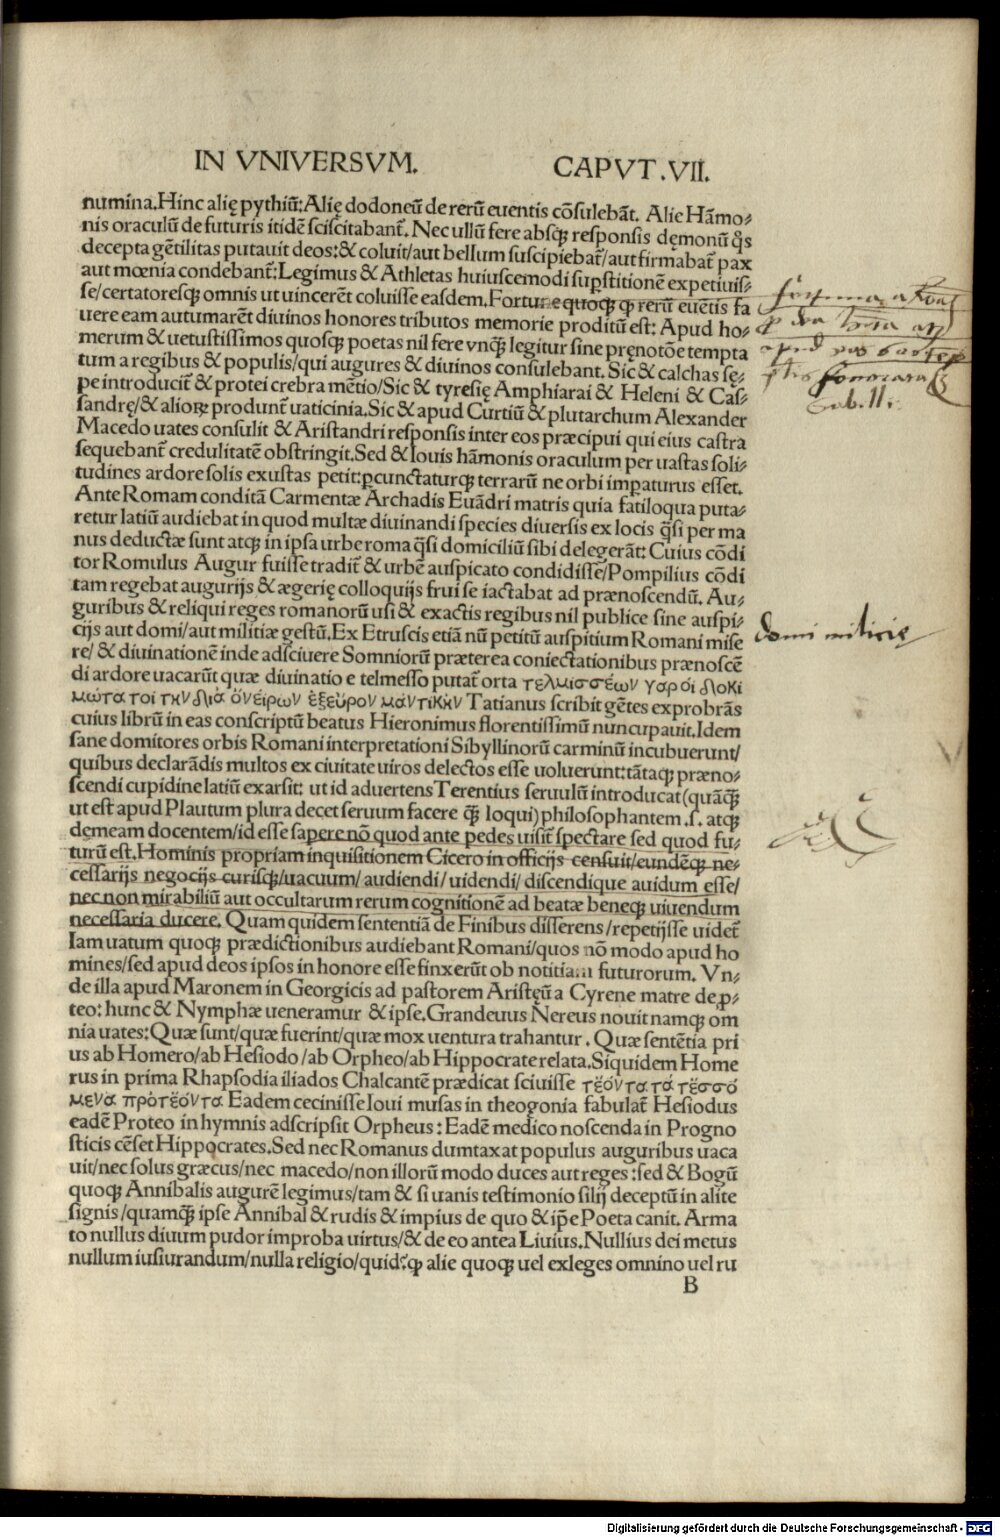 IN VNIVERSVM. CAPVT.VII.
numina.Hinc alię pythiū:Alię dodoneū de rerū euentis cōsulebāt. Alie Hāmo⸗
nis oraculū de futuris itidē sciscitabant̄. Nec ullū fere absꝗ responsis dęmonū q̄s
decepta gētilitas putauit deos:& coluit/aut bellum suscipiebat̄/aut firmabat̄ pax
aut mœnia condebant̄:Legimus & Athletas huiuscemodi suꝑstitionē expetiuis⸗
se/certatoresꝗ omnis ut uincerēt coluisse easdem.Fortunę quoꝗ ꝙ rerū euētis fa
uere eam autumarēt diuinos honores tributos memorie proditū est: Apud ho⸗
merum & uetustissimos quosꝗ poetas nil fere vnꝗ̄ legitur sine pręnotōe tempta
tum a regibus & populis/qui augures & diuinos consulebant. Sic & calchas sę⸗
pe introducit̄ & protei crebra mētio/Sic & tyresię Amphiarai & Heleni & Cas⸗
sandrę/& alioꝝ produnt̄ uaticinia.Sic & apud Curtiū & plutarchum Alexander
Macedo uates consulit & Aristandri responsis inter eos præcipui qui eius castra
sequebant̄ credulitatē obstringit.Sed & Iouis hāmonis oraculum per uastas soli⸗
tudines ardore solis exustas petit:ꝑcunctaturꝗ terrarū ne orbi imꝑaturus esset.
Ante Romam conditā Carmentæ Archadis Euādri matris quia fatiloqua puta⸗
retur latiū audiebat in quod multæ diuinandi species diuersis ex locis q̄si per ma
nus deductæ sunt atꝗ in ipsa urbe roma q̄si domiciliū sibi delegerāt: Cuius cōdi
tor Romulus Augur fuisse tradit̄ & urbē auspicato condidisse/Pompilius cōdi
tam regebat augurijs & ægerię colloquijs frui se iactabat ad prænoscendū. Au⸗
guribus & reliqui reges romanorū usi & exactis regibus nil publice sine auspi⸗
cijs aut domi/aut militiæ gestū.Ex Etruscis etiā nū petitū auspitium Romani mise
re/ & diuinationē inde adsciuere Somniorū præterea coniectationibus prænoscē
di ardore uacarūt quæ diuinatio e telmesso putat̄ orta τελμισσέων γαρ οἱ δοκι
μώτατοι τὴν διὰ ὀνείρων ἐξεῦρον μαντικὴν Tatianus scribit gētes exprobrās
cuius librū in eas conscriptū beatus Hieronimus florentissimū nuncupauit.Idem
sane domitores orbis Romani interpretationi Sibyllinorū carminū incubuerunt/
quibus declarādis multos ex ciuitate uiros delectos esse uoluerunt:tātaꝗ præno⸗
scendi cupidine latiū exarsit: ut id aduertens Terentius seruulū introducat(quāꝗ̄
ut est apud Plautum plura decet seruum facere ꝗ̄ loqui)philosophantem .s. atꝗ
demeam docentem/id esse sapere nō quod ante pedes uisit̄ spectare sed quod fu⸗
turū est.Hominis propriam inquisitionem Cicero in officijs censuit/eundēꝗ ne⸗
cessarijs negocijs curisꝗ/uacuum/ audiendi/ uidendi/ discendique auidum esse/
nec non mirabiliū aut occultarum rerum cognitionē ad beatæ beneꝗ uiuendum
necessaria ducere. Quam quidem sententiā de Finibus disserens/repetijsse uidet̄
Iam uatum quoꝗ prædictionibus audiebant Romani/quos nō modo apud ho
mines/sed apud deos ipsos in honore esse finxerūt ob notitiam futurorum. Vn⸗
de illa apud Maronem in Georgicis ad pastorem Aristęū a Cyrene matre de ꝓ⸗
teo: hunc & Nymphæ ueneramur & ipse.Grandeuus Nereus nouit namꝗ om
nia uates:Quæ sunt/quæ fuerint/quæ mox uentura trahantur . Quæ sentētia pri
us ab Homero/ab Hesiodo/ab Orpheo/ab Hippocrate relata.Siquidem Home
rus in prima Rhapsodia iliados Chalcantē prædicat sciuisse τἐόντα τά τἐσσό
μενα πρὀτἐόντα Eadem cecinisse Ioui musas in theogonia fabulat̄ Hesiodus
eadē Proteo in hymnis adscripsit Orpheus : Eadē medico noscenda in Progno
sticis cēset Hippocrates.Sed nec Romanus dumtaxat populus auguribus uaca
uit/nec solus græcus/nec macedo/non illorū modo duces aut reges :sed & Bogū
quoꝗ Annibalis augurē legimus/tam & si uanis testimonio silij deceptū in alite
signis/quamꝗ̄ ipse Annibal & rudis & impius de quo & ip̄e Poeta canit. Arma
to nullus diuum pudor improba uirtus/& de eo antea Liuius.Nullius dei metus
nullum iusiurandum/nulla religio/quid ꝙ alie quoꝗ uel exleges omnino uel ru
B
domi militię
Digitalisierung gefördert durch die Deutsche Forschungsgemeinschaft - DFG